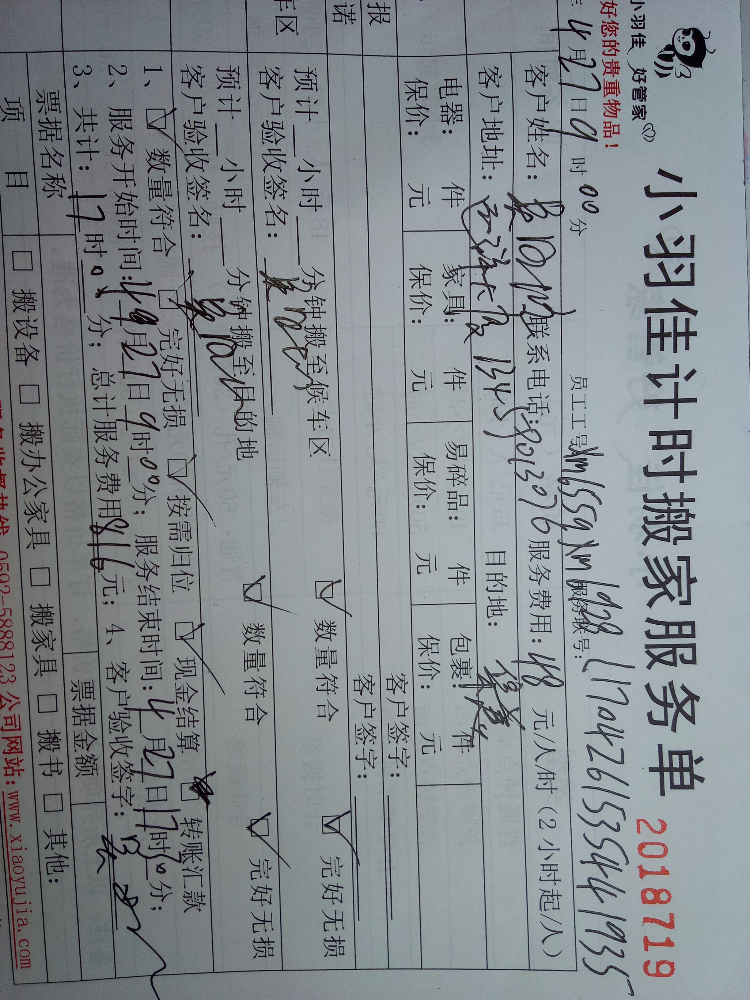 小羽佳 好管家
好您的贵重物品！
小羽佳计时搬家服务单 2018719
4月27日9时00分 员工工号 Xm6559 Xm6928 服务联号: L1704261535441935
客户姓名: 联系电话: 8013076 服务费用: 48 元/人/时（2小时起/人）
客户地址: 1345 目的地:
电器: 件 家具: 件 易碎品: 件 包裹: 件
保价: 元 保价: 元 保价: 元 保价: 元
客户签字:
报 客户签字:
诺
预计 小时 分钟搬至候车区 数量符合 完好无损
客户验收签名:
车区
预计 小时 分钟搬至目的地 数量符合 完好无损
客户验收签名:
1、 数量符合 完好无损 按需归位 现金结算 转账汇款
2、服务开始时间: 4月27日9时00分; 服务结束时间: 4月27日17时00分;
3、共计: 17时0 分; 总计服务费用816元; 4、客户验收签字:
票据名称 票据金额
项 目 搬设备 搬办公家具 搬家具 搬书 其他:
0592-5888123 公司网站:www.xiaoyujia.com